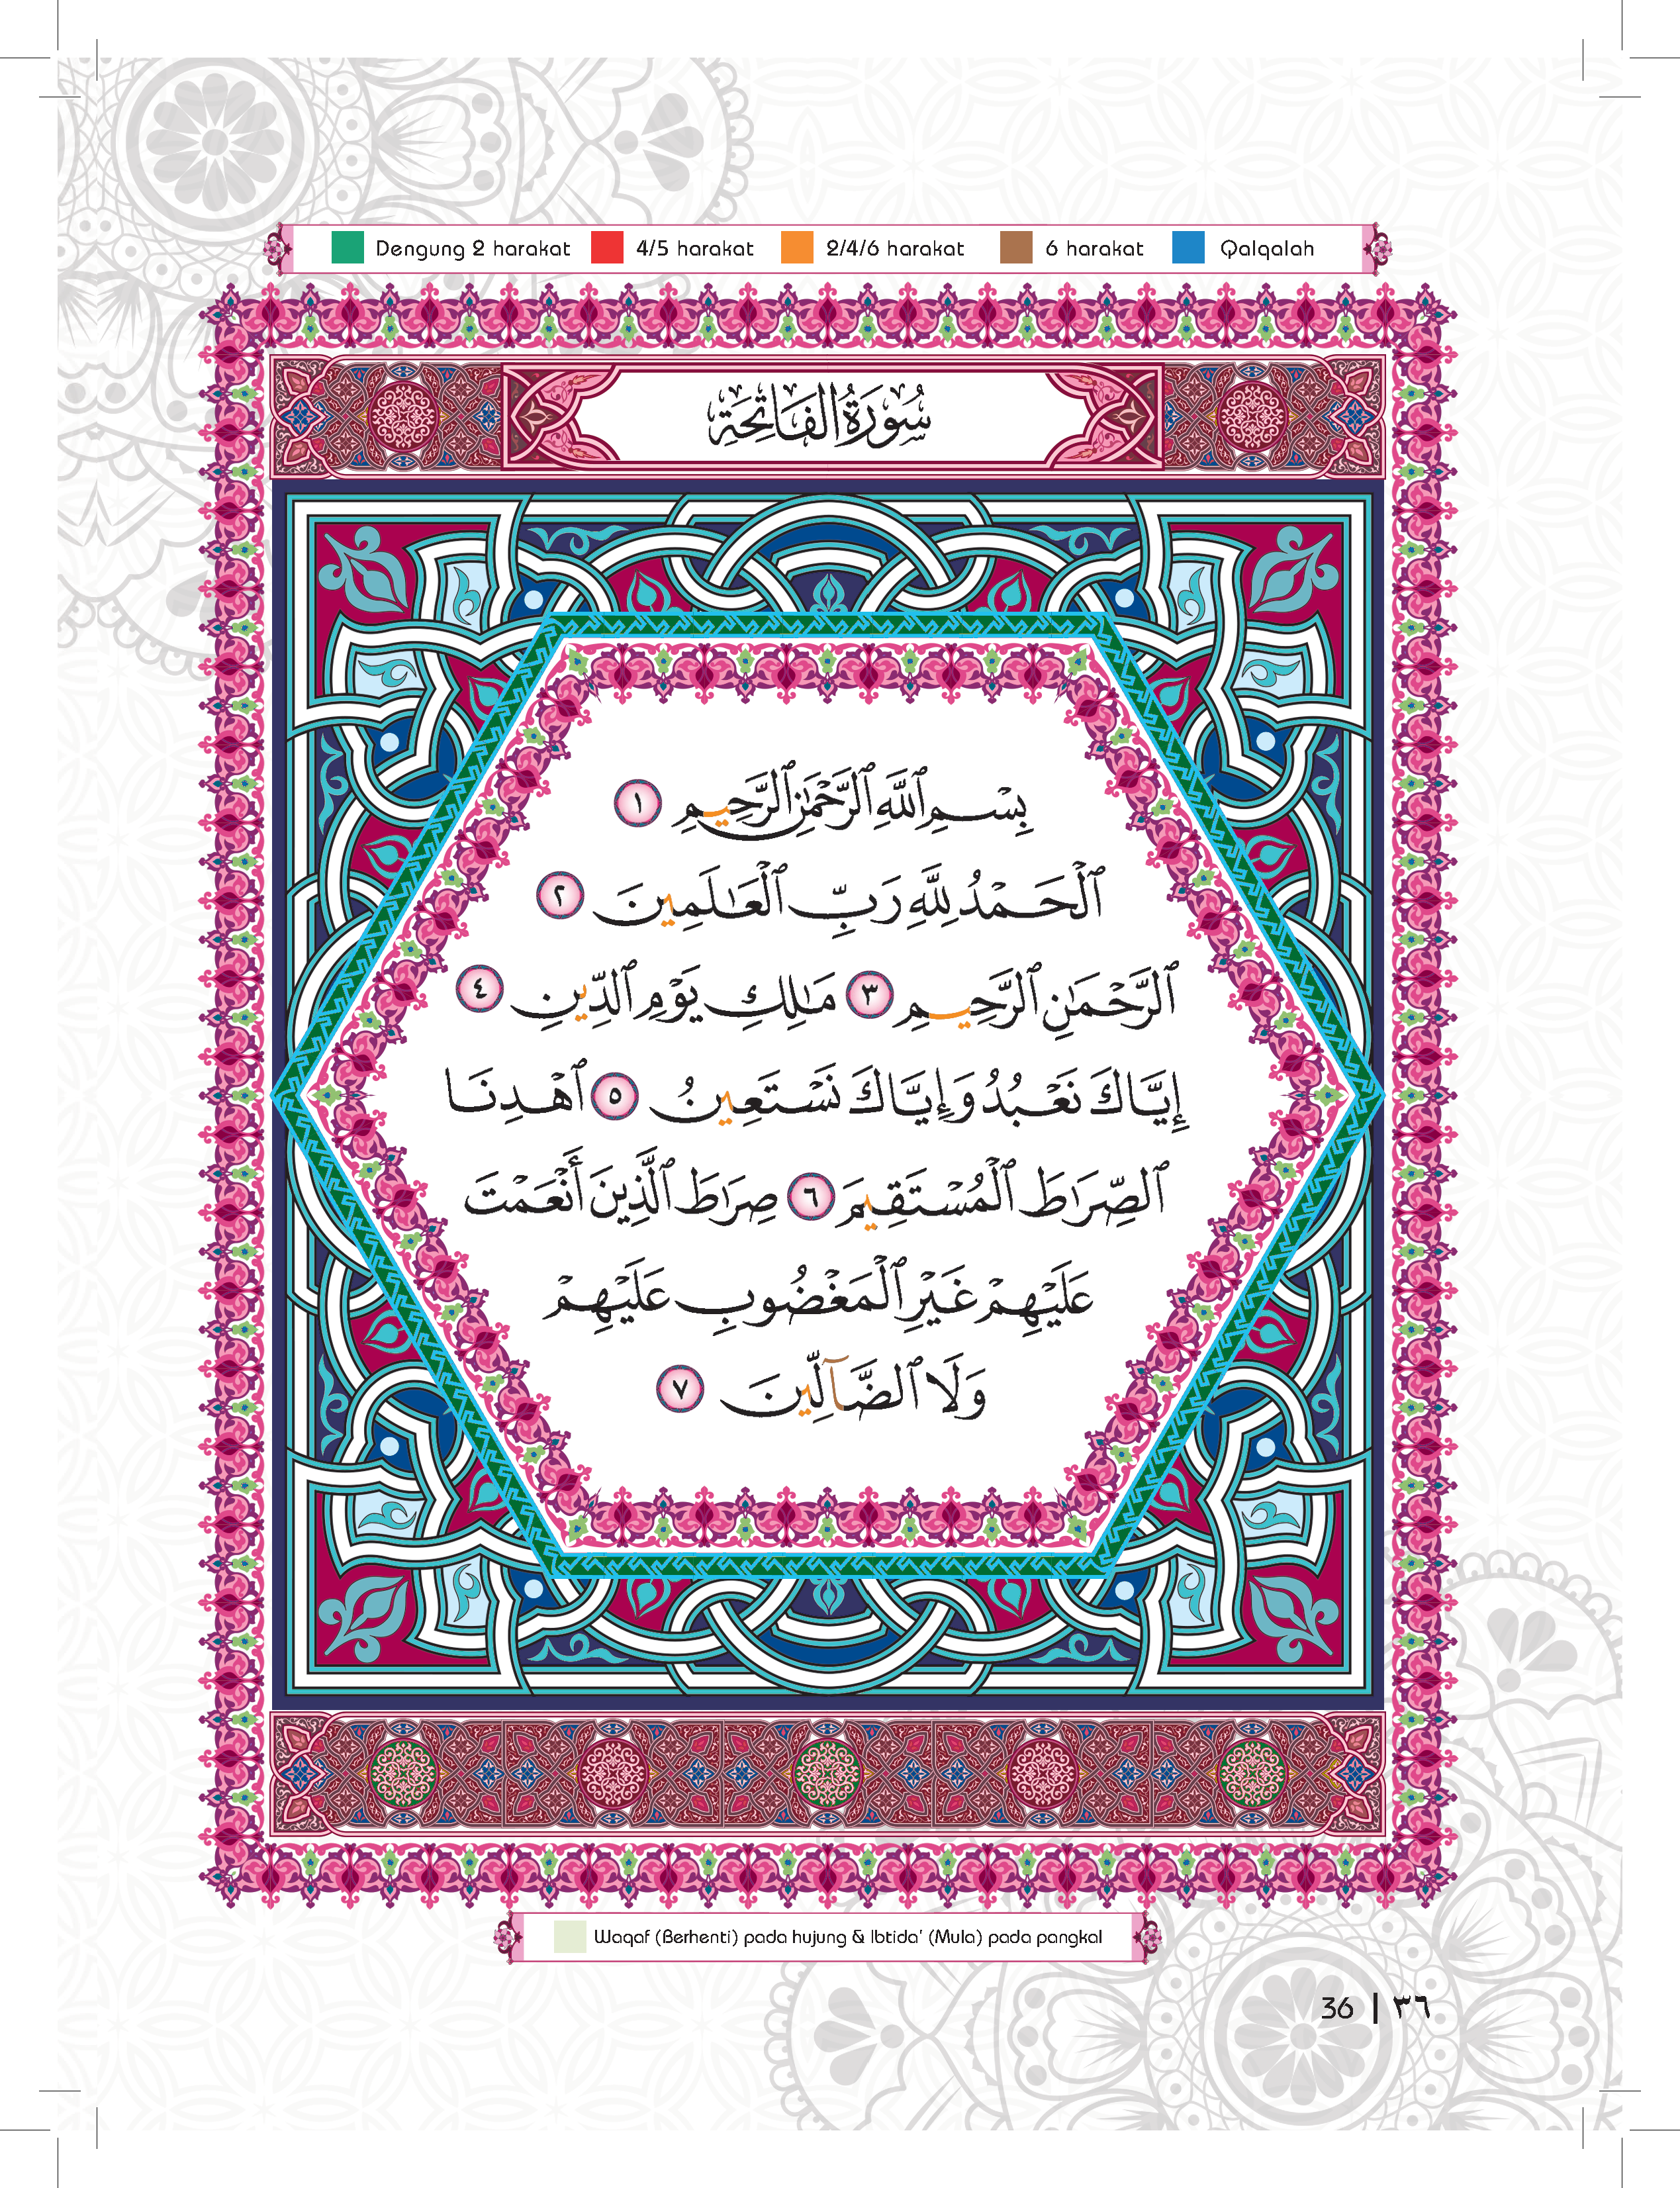 Dengung 2 harakat 4/5 harakat 2/4/6 harakat 6 harakat Qalqalah
سُورَةُ الفَاتِحَةِ
بِسْمِ ٱللَّهِ ٱلرَّحْمَٰنِ ٱلرَّحِيمِ ١
ٱلْحَمْدُ لِلَّهِ رَبِّ ٱلْعَٰلَمِينَ ٢
ٱلرَّحْمَٰنِ ٱلرَّحِيمِ ٣ مَٰلِكِ يَوْمِ ٱلدِّينِ ٤
إِيَّاكَ نَعْبُدُ وَإِيَّاكَ نَسْتَعِينُ ٥ ٱهْدِنَا
ٱلصِّرَٰطَ ٱلْمُسْتَقِيمَ ٦ صِرَٰطَ ٱلَّذِينَ أَنْعَمْتَ
عَلَيْهِمْ غَيْرِ ٱلْمَغْضُوبِ عَلَيْهِمْ
وَلَا ٱلضَّآلِّينَ ٧
Waqaf (Berhenti) pada hujung & Ibtida' (Mula) pada pangkal
36 | ٣٦